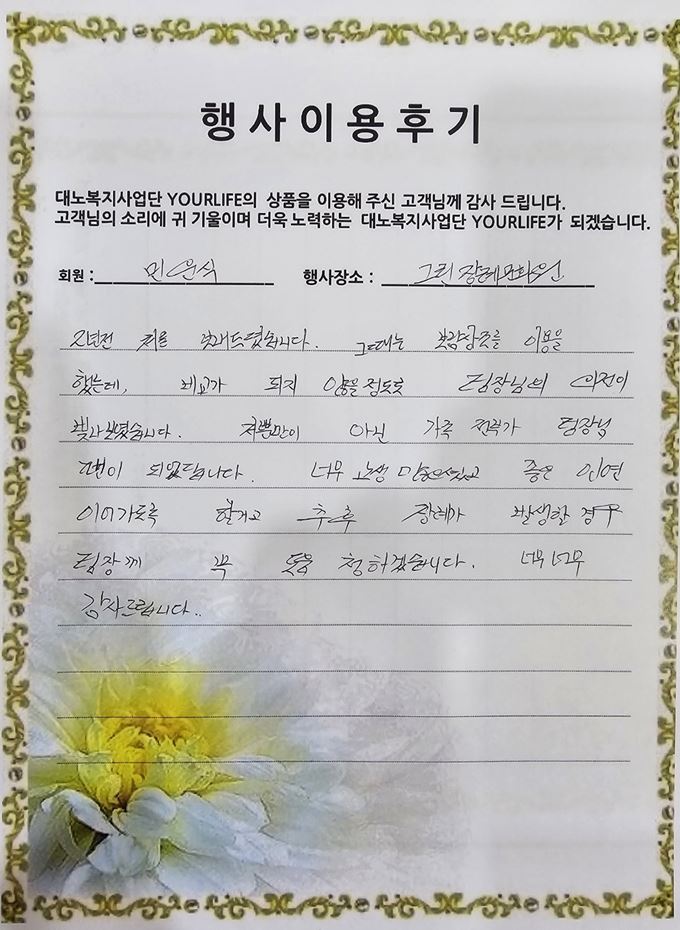 행사이용후기
대노복지사업단 YOURLIFE의 상품을 이용해 주신 고객님께 감사 드립니다.
고객님의 소리에 귀 기울이며 더욱 노력하는 대노복지사업단 YOURLIFE가 되겠습니다.
회원 : 민윤식 행사장소 : 그린장례문화원
2년전 보내드렸습니다. 그때는 보람상조를 이용을
했는데, 비교가 되지 않을정도로 팀장님의 의전이
빛나보였습니다. 저뿐만이 아닌 가족 전부가 팀장님
팬이 되었답니다. 너무 고생 많으셨고 좋은 인연
이어가도록 할거고 추후 장례가 발생할 경우
팀장께 꼭 도움 청하겠습니다. 너무너무
감사드립니다..